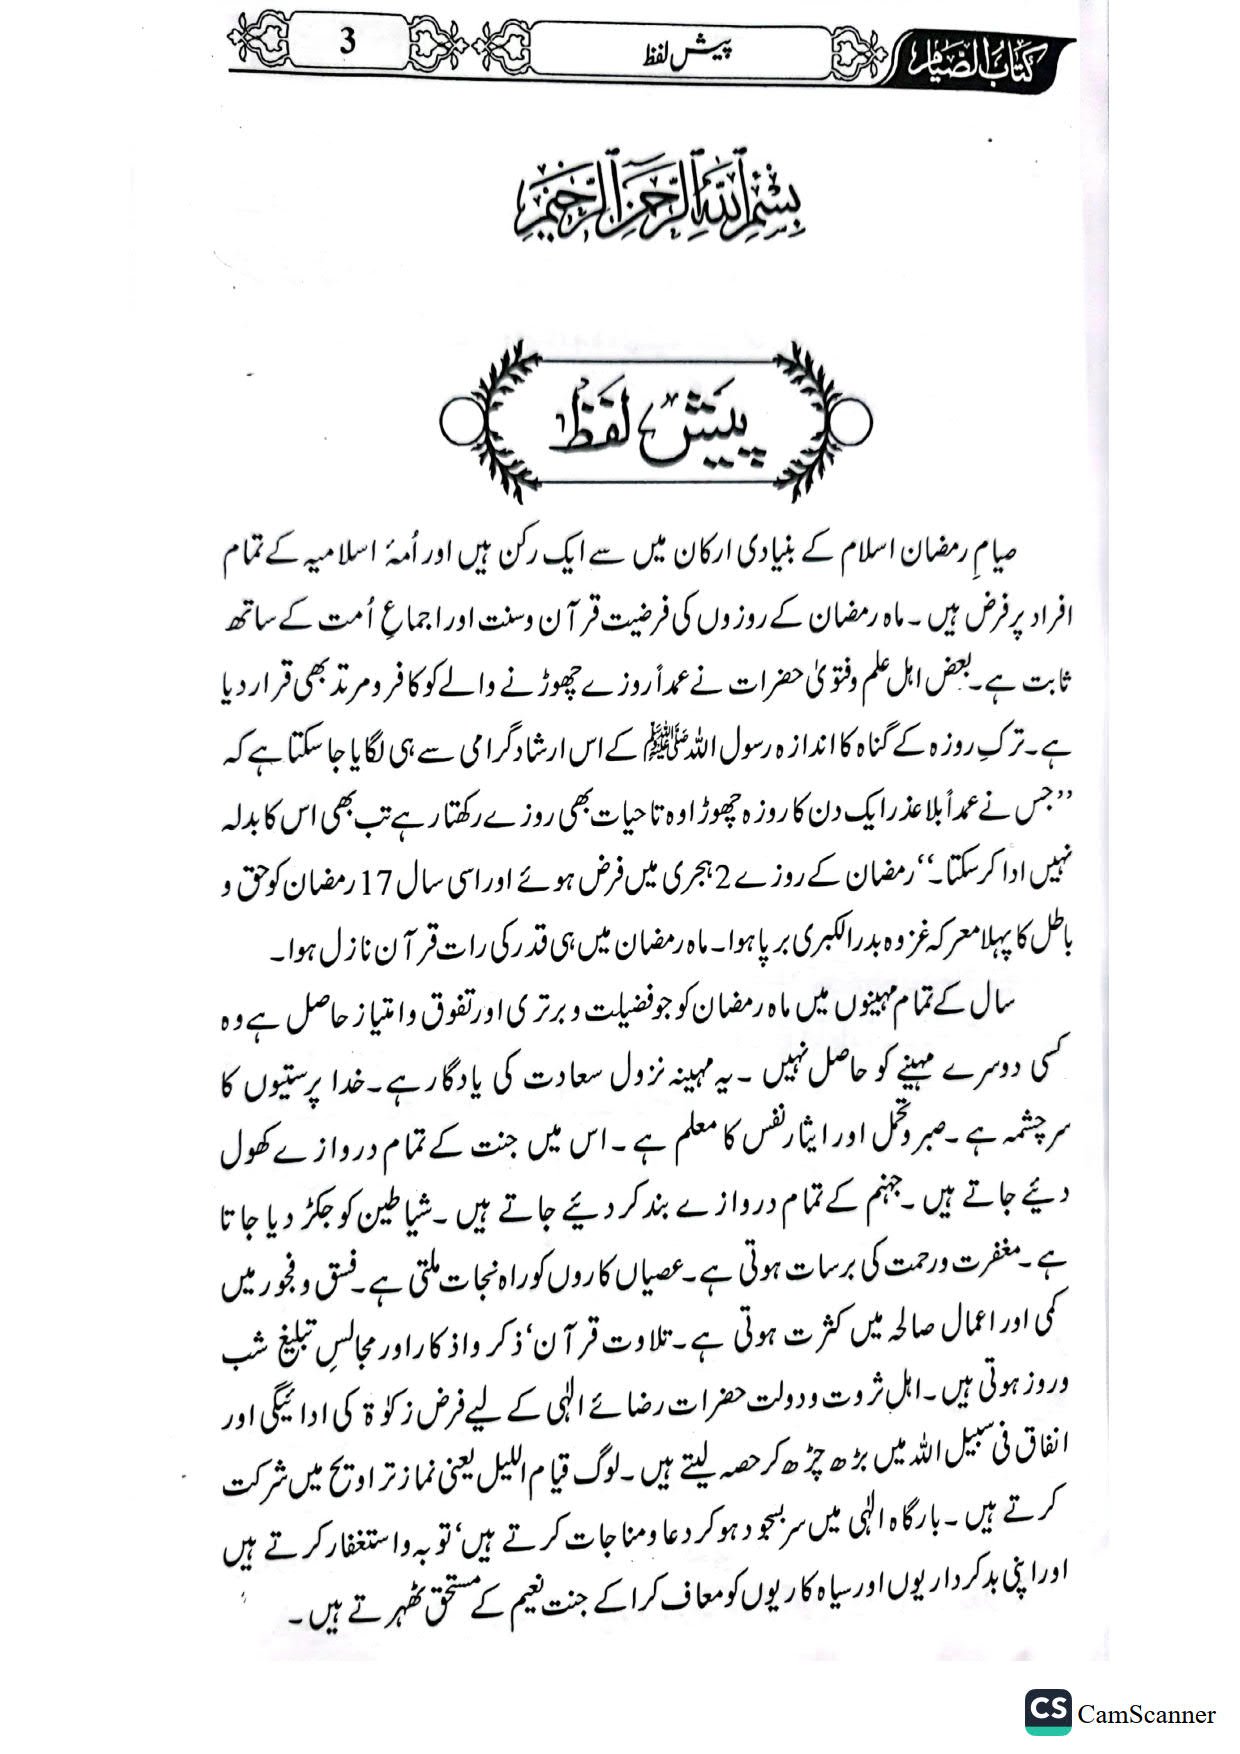 کتاب الصیام
پیش لفظ
3
بِسْمِ اللّٰهِ الرَّحْمٰنِ الرَّحِيْمِ
پیش لفظ
صیامِ رمضان اسلام کے بنیادی ارکان میں سے ایک رکن ہیں اور اُمۂ اسلامیہ کے تمام
افراد پر فرض ہیں ۔ ماہ رمضان کے روزوں کی فرضیت قرآن وسنت اور اجماعِ اُمت کے ساتھ
ثابت ہے۔ بعض اہل علم وفتویٰ حضرات نے عمداً روزے چھوڑنے والے کو کافر ومرتد بھی قرار دیا
ہے۔ ترکِ روزہ کے گناہ کا اندازہ رسول اللہ ﷺ کے اس ارشاد گرامی سے ہی لگایا جا سکتا ہے کہ
’’جس نے عمداً بلا عذر ایک دن کا روزہ چھوڑا وہ تاحیات بھی روزے رکھتا رہے تب بھی اس کا بدلہ
نہیں ادا کر سکتا۔‘‘ رمضان کے روزے 2 ہجری میں فرض ہوئے اور اسی سال 17 رمضان کو حق و
باطل کا پہلا معرکہ غزوہ بدر الکبری برپا ہوا۔ ماہ رمضان میں ہی قدر کی رات قرآن نازل ہوا۔
سال کے تمام مہینوں میں ماہ رمضان کو جو فضیلت و برتری اور تفوق و امتیاز حاصل ہے وہ
کسی دوسرے مہینے کو حاصل نہیں ۔ یہ مہینہ نزول سعادت کی یادگار ہے۔ خدا پرستیوں کا
سرچشمہ ہے ۔ صبر وتحمل اور ایثار نفس کا معلم ہے ۔ اس میں جنت کے تمام دروازے کھول
دئیے جاتے ہیں ۔ جہنم کے تمام دروازے بند کر دئیے جاتے ہیں ۔ شیاطین کو جکڑ دیا جاتا
ہے ۔ مغفرت ورحمت کی برسات ہوتی ہے ۔ عصیاں کاروں کو راہ نجات ملتی ہے ۔ فسق و فجور میں
کمی اور اعمال صالحہ میں کثرت ہوتی ہے ۔ تلاوت قرآن‘ ذکر واذکار اور مجالسِ تبلیغ شب
وروز ہوتی ہیں ۔ اہل ثروت ودولت حضرات رضائے الٰہی کے لیے فرض زکوٰۃ کی ادائیگی اور
انفاق فی سبیل اللہ میں بڑھ چڑھ کر حصہ لیتے ہیں ۔ لوگ قیام اللیل یعنی نماز تراویح میں شرکت
کرتے ہیں ۔ بارگاہ الٰہی میں سربسجود ہو کر دعا ومناجات کرتے ہیں‘ توبہ واستغفار کرتے ہیں
اور اپنی بدکرداریوں اور سیاہ کاریوں کو معاف کرا کے جنت نعیم کے مستحق ٹھہرتے ہیں ۔
CS CamScanner